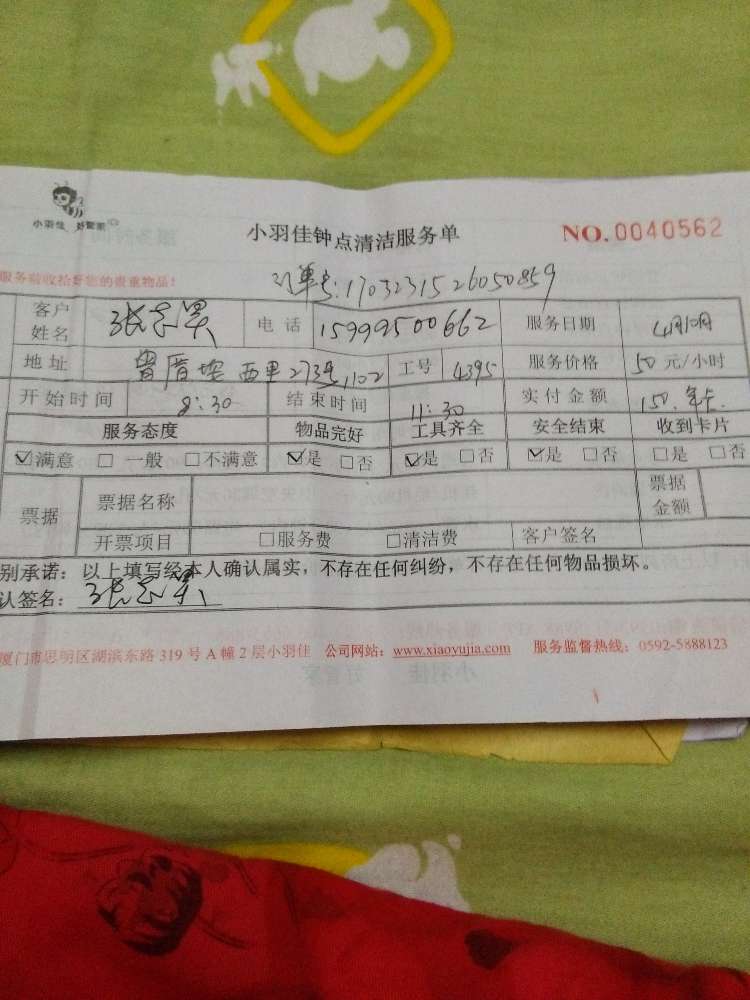 小羽佳 好管家
小羽佳钟点清洁服务单
NO.0040562
服务前请收拾好您的贵重物品!
订单号:1703231526050859
客户姓名 张志昊 电话 15999500662 服务日期 4月10日
地址 曾厝垵西里273号1102 工号 4395 服务价格 50元/小时
开始时间 8:30 结束时间 11:30 实付金额 150.年卡
服务态度 物品完好 工具齐全 安全结束 收到卡片
☑满意 □一般 □不满意 ☑是 □否 ☑是 □否 ☑是 □否 □是 □否
票据 票据名称 票据金额
开票项目 □服务费 □清洁费 客户签名
别承诺:以上填写经本人确认属实,不存在任何纠纷,不存在任何物品损坏。
认签名:
厦门市思明区湖滨东路 319 号 A 幢 2 层小羽佳 公司网站:www.xiaoyujia.com 服务监督热线:0592-5888123